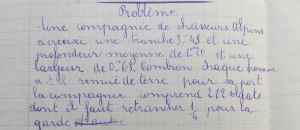 Problème
Une compagnie de chasseurs Alpins
a creusé une tranchée et une
profondeur moyenne de 1m20 et une
largeur de 0m62. Combien chaque homme
a-t-il remué de terre pour sa part
la compagnie comprend 212 soldats
dont il faut retrancher 1/4 pour la
garde